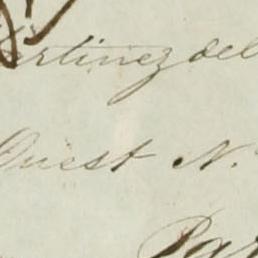 Martinez del
Ouest N.
Par